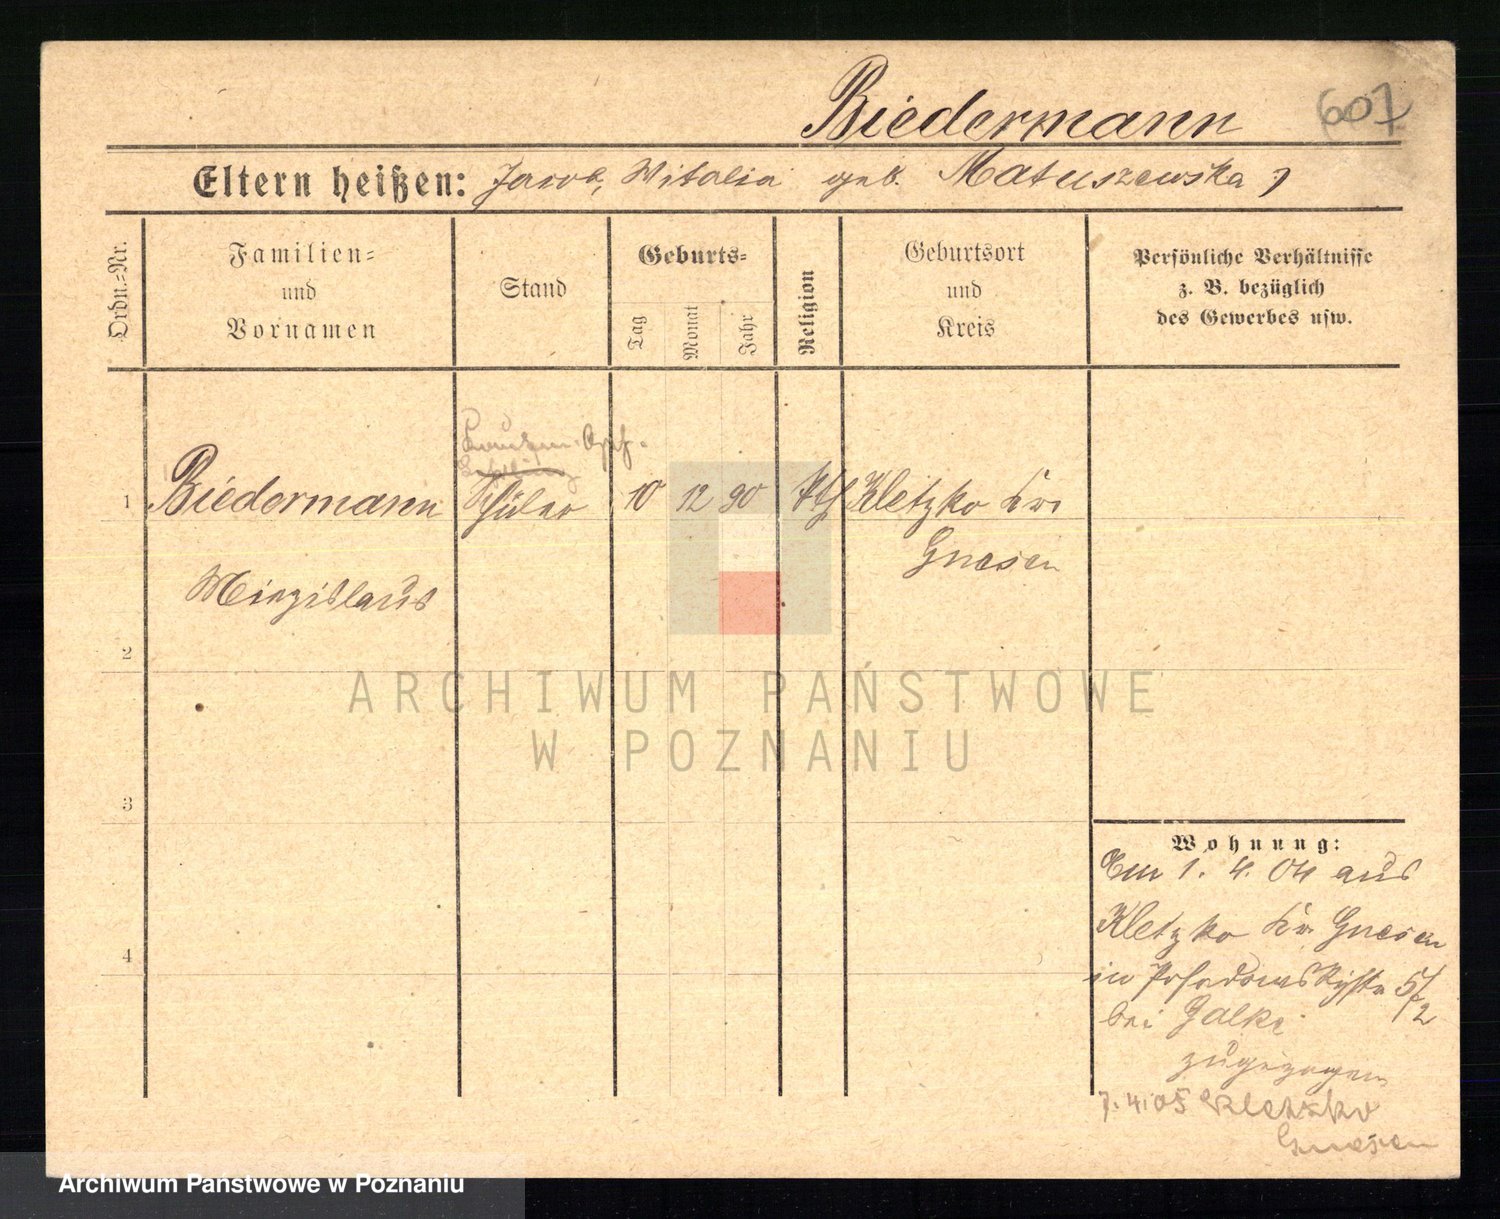 Biedermann 607
Eltern heißen: Jacob, Witalia geb. Matuszewska
Ordn.=Nr.
Familien=
und
Vornamen
Stand
Geburts=
Tag
Monat
Jahr
Religion
Geburtsort
und
Kreis
Persönliche Verhältnisse
z. B. bezüglich
des Gewerbes usw.
1 Biedermann Schüler 10 12 90 kth Kletzko Kr.
Gnesen
Miezislaus
2
ARCHIWUM PAŃSTWOWE
W POZNANIU
3
4
Wohnung:
Am 1. 4. 04 aus
Kletzko Kr. Gnesen
in Posadowskystr 5/2
bei Galke
zugezogen
7.4.05 Kletzko
Gnesen
Archiwum Państwowe w Poznaniu